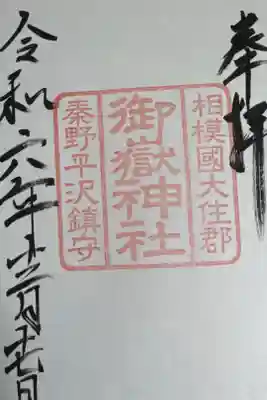 奉拝
相模國大住郡
御嶽神社
秦野平沢鎮守
令和六年十二月十七日